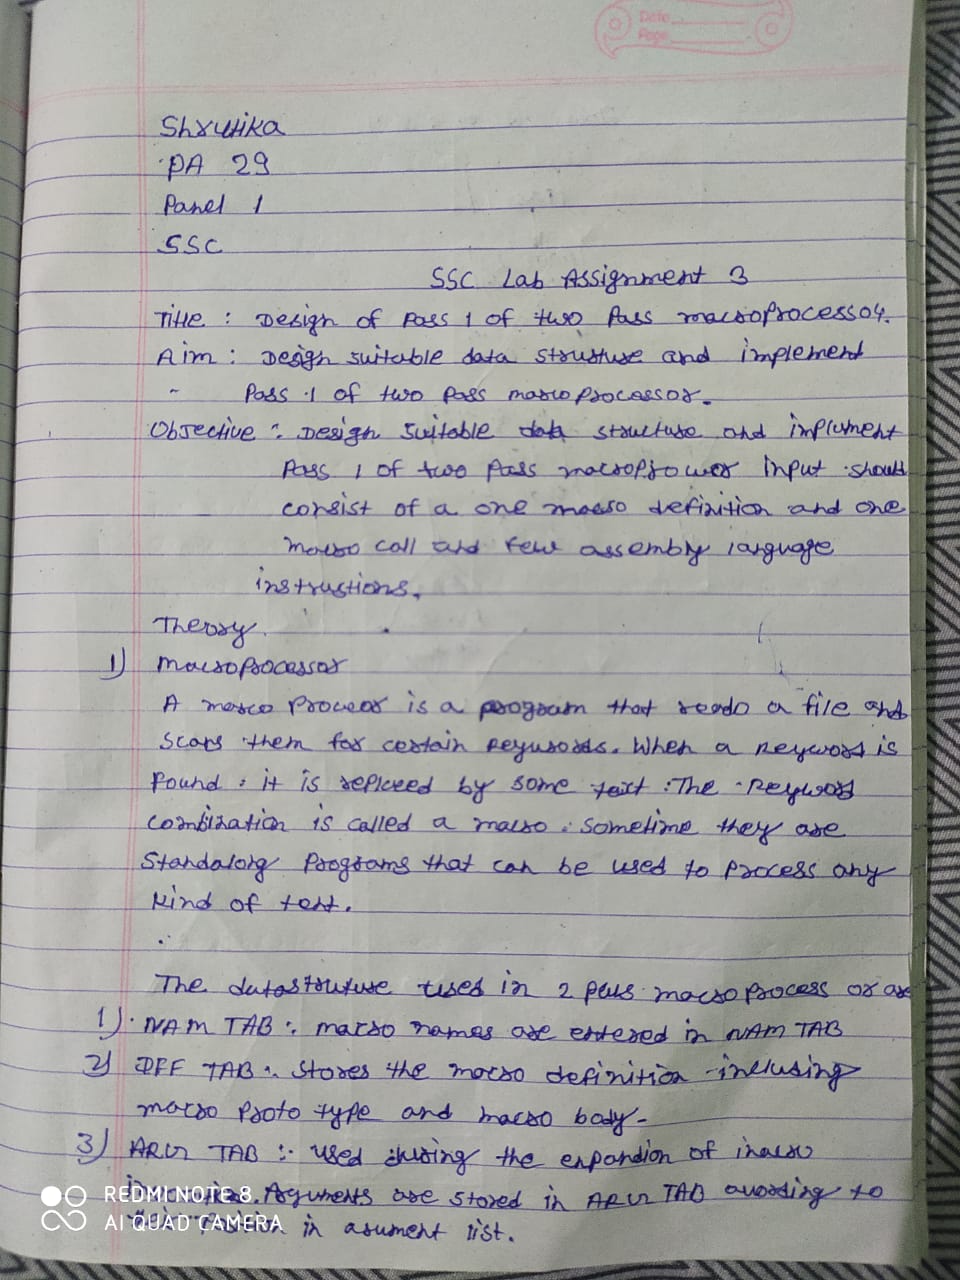 Date
Page
Shrutika
PA 29
Panel 1
SSC
SSC Lab Assignment 3
Title : Design of Pass 1 of two Pass macroprocessor.
Aim : Design suitable data structure and implement
Pass 1 of two pass macroprocessor.
Objective : Design suitable data structure and implement
Pass 1 of two Pass input should
consist of a one macro definition and one
macro call and few assembly language
instructions.
Theory
1) Macroprocessor
A macro is a program that reads a file and
scans them for certain keywords. When a keyword is
found, it is replaced by some text. The keyword
combination is called a macro. Sometime they are
Standalong Programs that can be used to process any
kind of text.
The used in 2 macro process or are
1) NAM TAB : macro names are entered in NAM TAB
2) DEF TAB : Stores the macro definition including
macro proto type and macro body.
3) ARG TAB : used during the expandion of macro
Arguments are stored in ARG TAB according to
in arument list.
REDMI NOTE 8
AI QUAD CAMERA